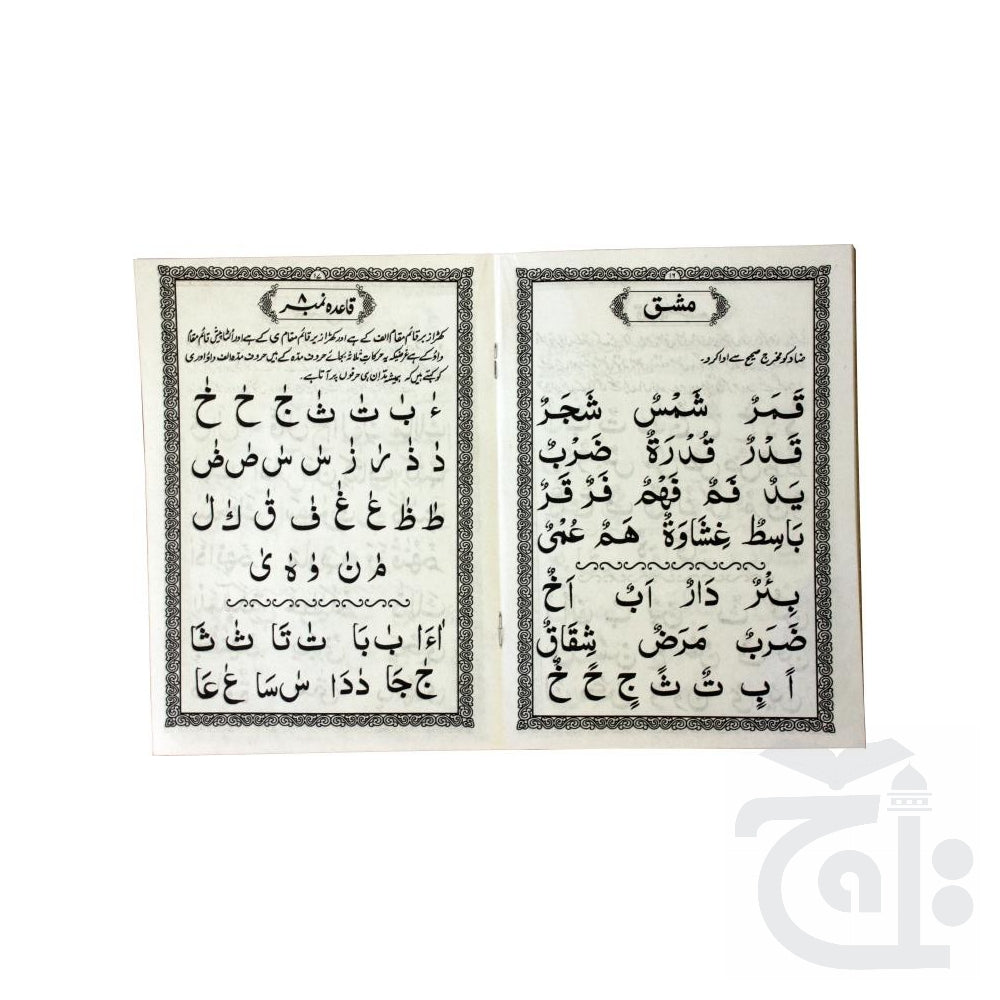 مشق
ضاد کو مخرج صحیح سے ادا کرو۔
قَمَرٌ شَمْسٌ شَجَرٌ
قَدْرٌ قُدْرَةٌ ضَرْبٌ
يَدٌ فَمٌ فَهْمٌ فَرٌ قَرٌ
بَاسِطٌ غِشَاوَةٌ هَمٌ عُمْىٌ
بِئْرٌ دَارٌ اَبٌ اَخٌ
ضَرَبٌ مَرَضٌ شِقَاقٌ
اً بٍ تٌ ثً جٍ حً خٌ
قاعدہ نمبر ۸
کھڑا زبر قائم مقام الف کے ہے اور کھڑا زیر قائم مقام ی کے ہے اور اُلٹا پیش قائم مقام
واؤ کے ہے غرضیکہ یہ حرکات ثلاثہ بجائے حروف مدہ کے ہیں حروف مدہ الف واؤ اور ی
کو کہتے ہیں کہ ہمیشہ مد اِن ہی حرفوں پر آتا ہے۔
ءٰ بٰ تٰ ثٰ جٰ حٰ خٰ
دٰ ذٰ رٰ زٰ سٰ شٰ صٰ ضٰ
طٰ ظٰ عٰ غٰ فٰ قٰ كٰ لٰ
مٰ نٰ وٰ هٰ ىٰ
اٰ ءَا بٰ بَا تٰ تَا ثٰ ثَا
جٰ جَا دٰ دَا سٰ سَا عٰ عَا